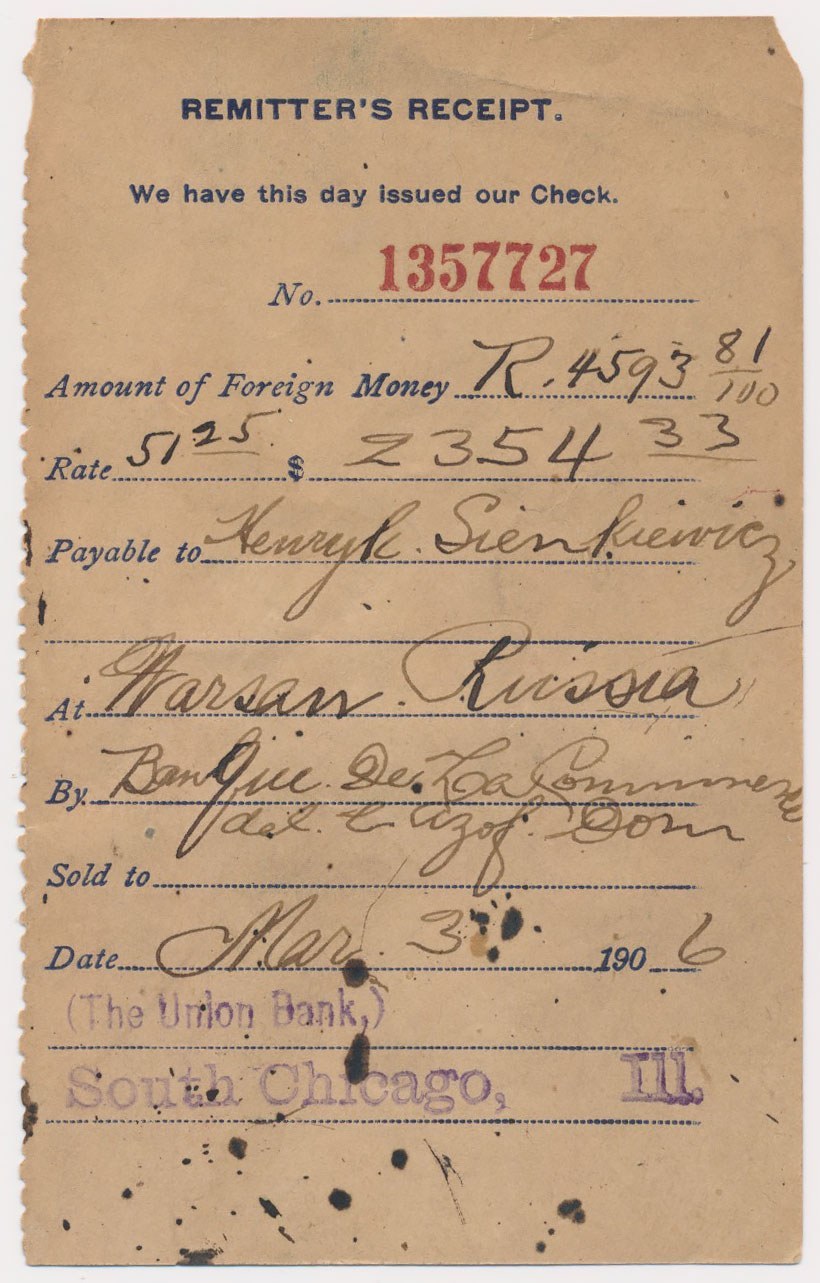 REMITTER'S RECEIPT.
We have this day issued our Check.
No. 1357727
Amount of Foreign Money R. 4593 81/100
Rate 51 25 $ 2354 33
Payable to Henryk. Sienkiewicz
At Warsaw. Russia
By Banque. De. La Commerce
del. Azof. Don
Sold to
Date Mar. 3 1906
(The Union Bank,)
South Chicago, Ill.